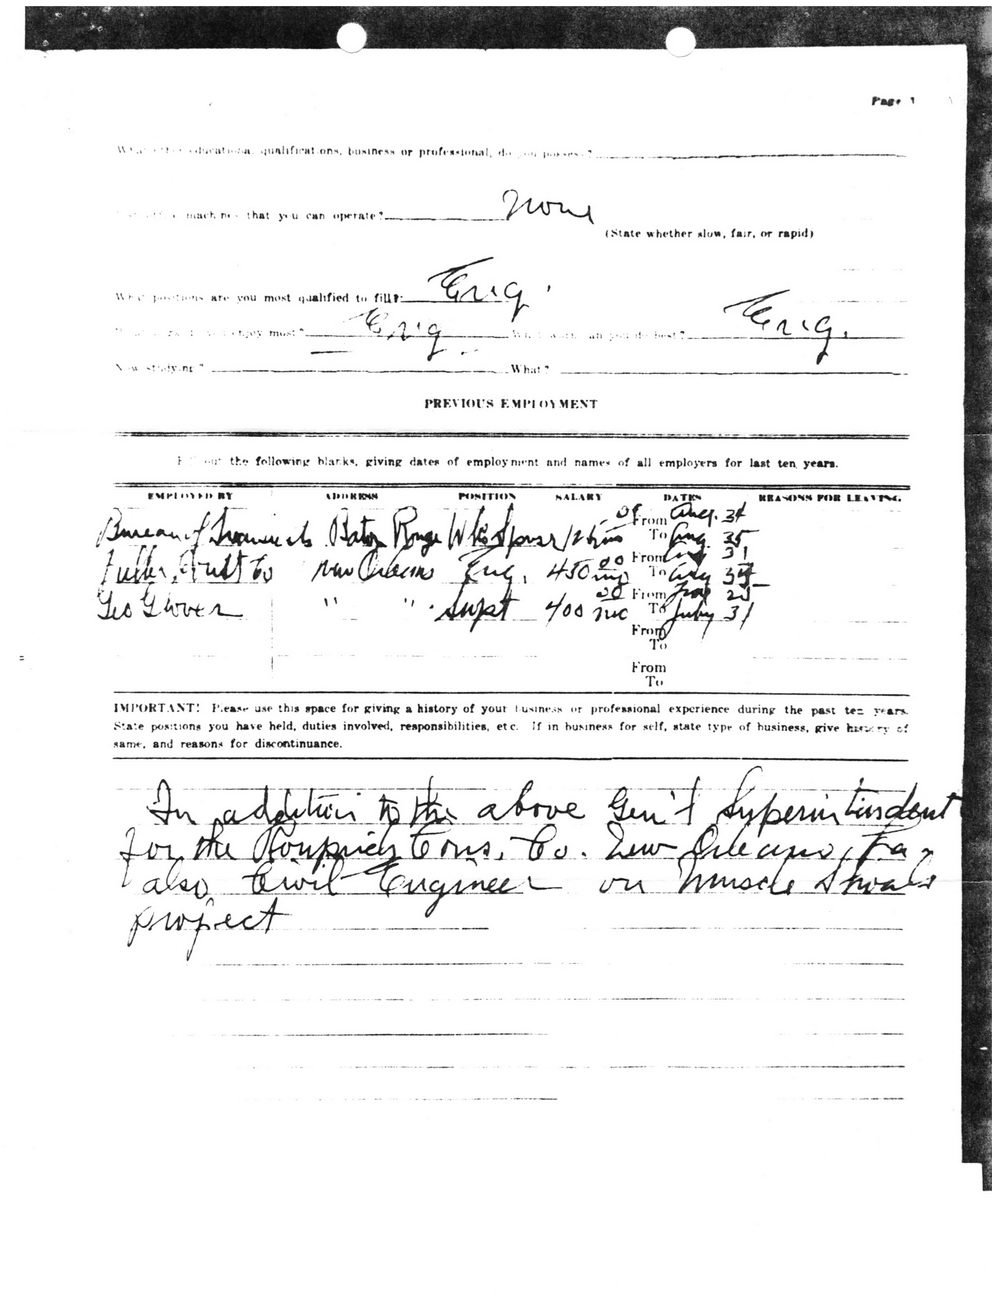 Page
educational qualifications, business or professional, do you possess?
machines that you can operate? None
(State whether slow, fair, or rapid)
What positions are you most qualified to fill? Eng.
enjoy most? Eng. What work can you do best? Eng.
Now studying? What?
PREVIOUS EMPLOYMENT
Fill out the following blanks, giving dates of employment and names of all employers for last ten years.
EMPLOYED BY ADDRESS POSITION SALARY DATES REASONS FOR LEAVING
Bureau of Baton Rouge From Aug. 34
To Aug. 35
Fuller, Co New Orleans Eng. 450 00 mo From Aug 31
To Aug 34
Geo Glover " " Supt 400 00 From
To July 31
From
To
From
To
IMPORTANT! Please use this space for giving a history of your business or professional experience during the past ten years.
State positions you have held, duties involved, responsibilities, etc. If in business for self, state type of business, give history of
same, and reasons for discontinuance.
In addition to the above Gen'l Superintendent
for the Cons. Co. New Orleans, La.
also Civil Engineer on Muscle Shoals
project